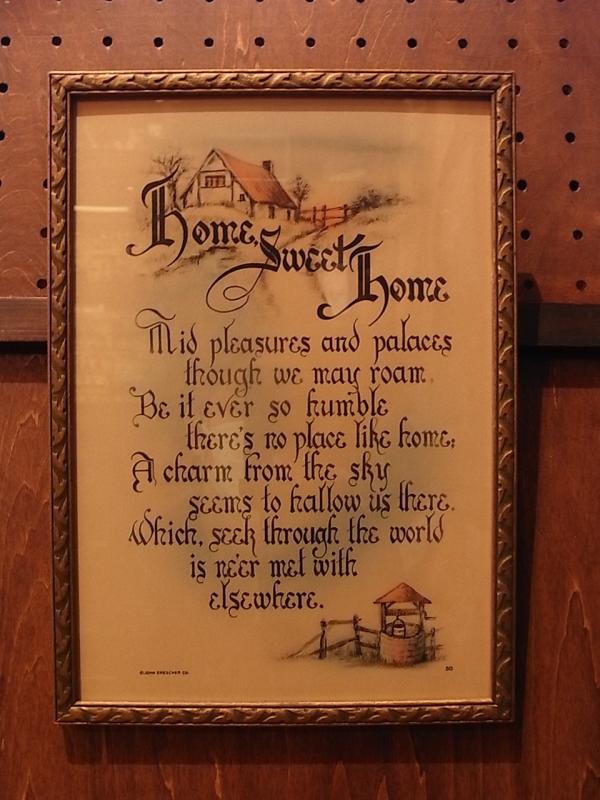 Home,
Sweet
Home
Mid pleasures and palaces
though we may roam,
Be it ever so humble
there's no place like home;
A charm from the sky
seems to hallow us there,
Which, seek through the world
is ne'er met with
elsewhere.
© JOHN DRESCHER CO.
50